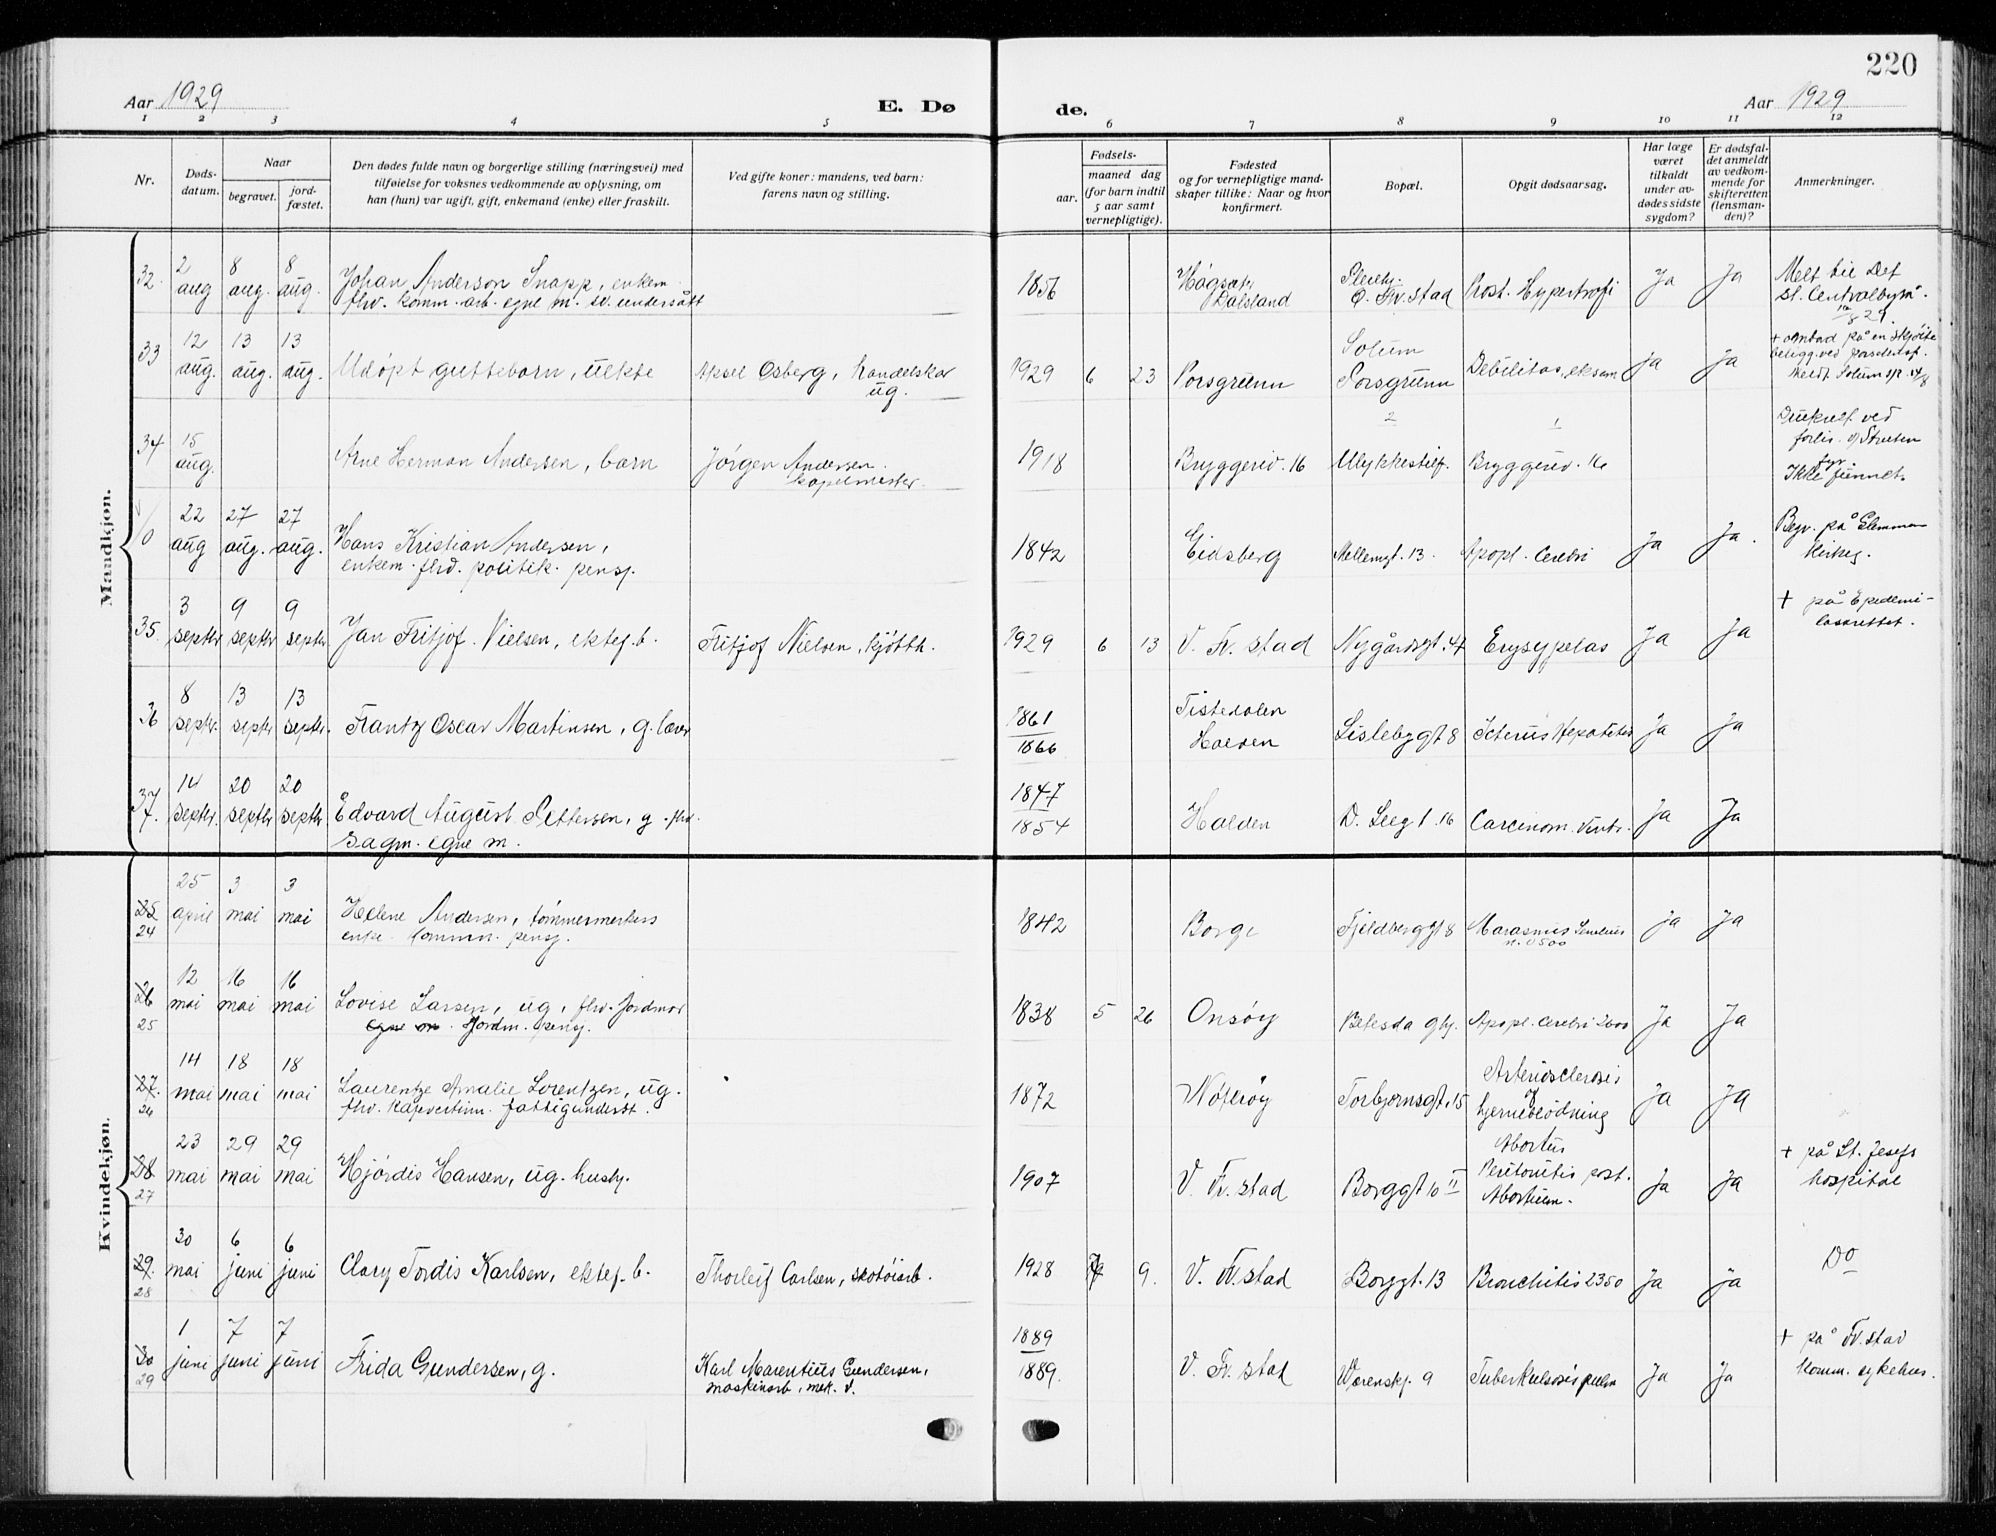 220
Aar 1929
E. Dø
de.
Aar 1929
1 2 3 4 5 6 7 8 9 10 11 12
Nr.
Døds-
datum.
Naar
begravet.
jord-
fæstet.
Den dødes fulde navn og borgerlige stilling (næringsvei) med
tilføielse for voksnes vedkommende av oplysning, om
han (hun) var ugift, gift, enkemand (enke) eller fraskilt.
Ved gifte koner: mandens, ved barn:
farens navn og stilling.
Fødsels-
aar. maaned dag
(for barn indtil
5 aar samt
vernepligtige).
Fødested
og for vernepligtige mand-
skaper tillike: Naar og hvor
konfirmert.
Bopæl.
Opgit dødsaarsag.
Har læge
været
tilkaldt
under av-
dødes sidste
sygdom?
Er dødsfal-
det anmeldt
av vedkom-
mende for
skifteretten
(lensman-
den)?
Anmerkninger.
Mandkjøn.
32. 2 aug 8 aug. 8 aug.
Johan Anderson Snapp, enkem.
fhv. komm. arb. egne m. sv. undersått
1856
Dalsland
Fr.stad
Prost. Hypertrofi
Ja Ja
Melt til Det
st. Centralbyrå.
33 12 aug. 13 aug. 13 aug.
Udøpt guttebarn, uekte
Aksel Osberg, handelskar
ug.
1929 6 23
Porsgrunn
Solum
Porsgrunn
Debilitas
ja ja
34 15 aug.
Arne Herman Andersen, barn
Jørgen Andersen.
kapelmester.
1918
Bryggeriv. 16
Ulykkestilf.
Bryggeriv. 16
Druknet ved
forlis
Ikke funnet.
0 22 aug 27 aug. 27 aug.
Hans Kristian Andersen,
enkem. fhv. politik. pensj.
1842
Eidsberg
Mellemgt. 13.
Apopl. Cerebri
Ja Ja.
Begr. på Glemmen
Kirkeg.
35. 3 septbr 9 septbr 9 septbr
Jan Fritjof Nielsen, ektef. b.
Fritjof Nielsen, kjøtth.
1929 6 13
V. Fr. stad
Nygårdsgt. 47
Erysypelas
Ja Ja
+ på Epedemi-
lasarettet.
36 8 septr. 13 septr 13 septr.
Frantz Oscar Martinsen, g.
1861
1866
Tistedalen
Halden
Lislebygt 8
Icterus Hepatitis
Ja ja
37. 14 septr. 20 septbr 20 septbr
Edvard August Pettersen, g. fhv.
sagm. egne m.
1847
1854
Halden
Carcinom. Ventr.
Ja Ja
Kvindekjøn.
25
24 25 april 3 mai 3 mai
Helene Andersen, tømmermerkers
enke. Kommun. pensj.
1842
Borge
Fjeldberggt 8
Marasmus Senilius
ja Ja
26
25 12 mai 16 mai 16 mai
Lovise Larsen, ug, fhv. Jordmor
egne m. Jordm. pensj.
1838 5 26
Onsøy
Betesda
Apopl. Cerebri
Ja Ja
27.
26 14 mai 18 mai 18 mai
Laurentze Amalie Lorentzen, ug.
fhv. fattigunderst.
1872
Nøtterøy
Torbjørnsgt. 15
Arteriosclerosis
og
hjerneblødning
Ja Ja
28.
27 23 mai 29 mai 29 mai
Hjørdis Hansen, ug. husbj.
1907
V. Fr. stad
Borggt 10 II
Abortus
Peritonitis post.
Abortum.
Ja Ja
+ på St. Josefs
hospital
29.
28 30 mai 6 juni 6 juni
Clary Tordis Karlsen, ektef. b.
Thorleif Carlsen, skotøiarb.
1928 9.
V. Fr.stad
Borggt. 13
Bronchitis 2350
Ja ja
Do
30
29 1 juni 7 juni 7 juni
Frida Gundersen, g.
Karl Marentius Gundersen,
maskinarb, mek. v.
1889
1889.
V. Fr. stad
Wærenskj. 9
Tuberkulosis pulm
Ja Ja
+ på Fr.stad
Komm. sykehus.